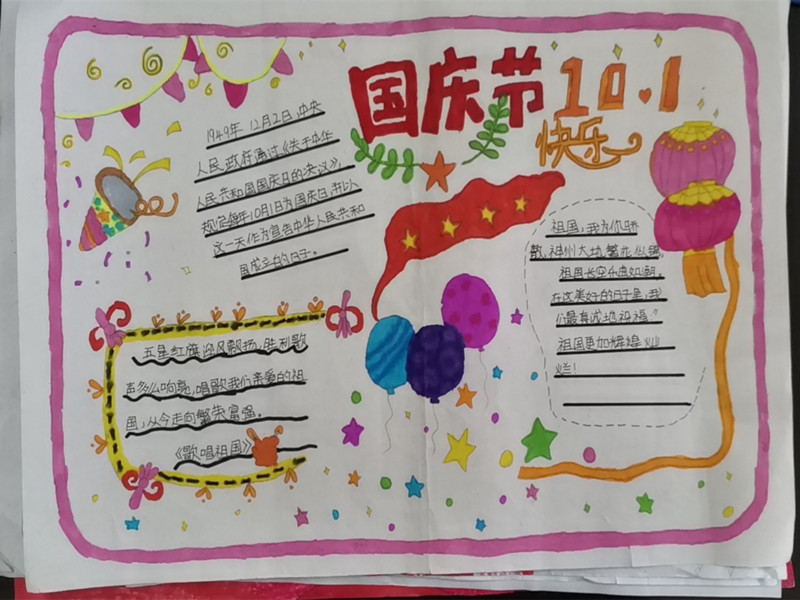 国庆节 10.1
快乐
1949年 12月2日,中央
人民政府通过《关于中华
人民共和国国庆日的决议》,
规定每年10月1日为国庆日,并以
这一天作为宣告中华人民共和
国成立的日子。
祖国,我为你骄
傲,神州大地繁花似锦,
祖国长空乐曲如潮。
在这美好的日子里,我
们最真诚地祝福:
祖国更加辉煌灿
烂!
五星红旗迎风飘扬,胜利歌
声多么响亮,唱歌我们亲爱的祖
国,从今走向繁荣富强。
《歌唱祖国》